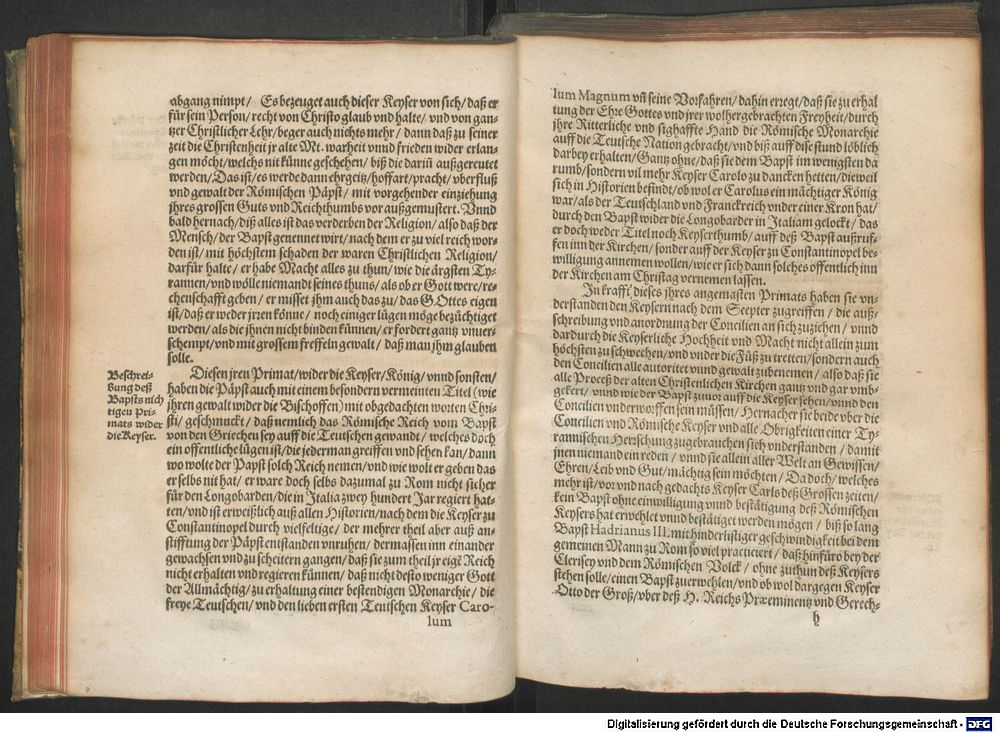 abgang nimpt/ Es bezeuget auch dieser Keyser von sich/ daß er
für sein Person/ recht von Christo glaub vnd halte/ vnd von gan-
tzer Christlicher Lehr/ beger auch nichts mehr/ dann daß zu seiner
zeit die Christenheit jr alte Mt. warheit vnnd frieden wider erlan-
gen möcht/ welchs nit künne geschehen/ biß die dariñ außgereutet
werden/ Das ist/ es werde dann ehrgeitz/ hoffart/ pracht/ vberfluß
vnd gewalt der Römischen Päpst/ mit vorgehender einziehung
jhres grossen Guts vnd Reichthumbs vor außgemustert. Vnnd
bald hernach/ diß alles ist das verderben der Religion/ also daß der
Mensch/ der Bapst genennet wirt/ nach dem er zu viel reich wor-
den ist/ mit höchstem schaden der waren Christlichen Religion/
darfür halte/ er habe Macht alles zu thun/ wie die ärgsten Ty-
rannen/ vnd wölle niemandt seines thuns/ als ob er Gott were/ re-
chenschafft geben/ er misset jhm auch das zu/ das GOttes eigen
ist/ daß er weder jrren könne/ noch einiger lügen möge bezüchtiget
werden/ als die jhnen nicht binden künnen/ er fordert gantz vnuer-
schempt/ vnd mit grossem freffeln gewalt/ daß man jhm glauben
solle.
Beschrei-
bung deß
Bapsts nich
tigen Pri-
mats wider
die Keyser.
Diesen jren Primat/ wider die Keyser/ König/ vnnd sonsten/
haben die Päpst auch mit einem besondern vermeinten Titel (wie
jhren gewalt wider die Bischoffen) mit obgedachten worten Chri-
sti/ geschmuckt/ daß nemlich das Römische Reich vom Bapst
von den Griechen sey auff die Teutschen gewandt/ welches doch
ein offentliche lügen ist/ die jederman greiffen vnd sehen kan/ dann
wo wolte der Papst solch Reich nemen/ vnd wie wolt er geben das
er selbs nit hat/ er ware doch selbs dazumal zu Rom nicht sicher
für den Longobarden/ die in Italia zwey hundert Jar regiert hat-
ten/ vnd ist erweißlich auß allen Historien/ nach dem die Keyser zu
Constantinopel durch vielfeltige/ der mehrer theil aber auß an-
stifftung der Päpst entstanden vnruhen/ dermassen inn einander
gewachsen vnd zu scheitern gangen/ daß sie zum theil jr eigẽ Reich
nicht erhalten vnd regieren künnen/ daß nicht desto weniger Gott
der Allmächtig/ zu erhaltung einer bestendigen Monarchie/ die
freye Teutschen/ vnd den lieben ersten Teutschen Keyser Caro-
lum
lum Magnum vñ seine Vorfahren/ dahin erregt/ daß sie zu erhal
tung der Ehre Gottes vnd jrer wolhergebrachten Freyheit/ durch
jhre Ritterliche vnd sighaffte Hand die Römische Monarchie
auff die Teutsche Nation gebracht/ vnd biß auff dise stund löblich
darbey erhalten/ Gantz ohne/ daß sie dem Bapst im wenigsten da
rumb/ sondern vil mehr Keyser Carolo zu dancken hetten/ dieweil
sich in Historien befindt/ ob wol er Carolus ein mächtiger König
war/ als der Teutschland vnd Franckreich vnder einer Kron hat/
durch den Bapst wider die Longobarder in Italiam gelockt/ das
er doch weder Titel noch Keyserthumb/ auff deß Bapst außruf-
fen inn der Kirchen/ sonder auff der Keyser zu Constantinopel be-
willigung annemen wollen/ wie er sich dann solches offentlich inn
der Kirchen am Christag vernemen lassen.
In krafft dieses jhres angemasten Primats haben sie vn-
derstanden den Keysern nach dem Scepter zugreiffen/ die auß-
schreibung vnd anordnung der Concilien an sich zuziehen/ vnnd
dardurch die Keyserliche Hochheit vnd Macht nicht allein zum
höchsten zu schwechen/ vnd vnder die Füß zu tretten/ sondern auch
den Concilien alle autoritet vnnd gewalt zubenemen/ also daß sie
alle Proceß der alten Christenlichen Kirchen gantz vnd gar vmb-
gekert/ vnnd wie der Bapst zuuor auff die Keyser sehen/ vnnd den
Concilien vnderworffen sein müssen/ Hernacher sie beide vber die
Concilien vnd Römische Keyser vnd alle Obrigkeiten einer Ty-
rannischen Herschung zugebrauchen sich vnderstanden/ damit
jnen niemand ein reden/ vnnd sie allein aller Welt an Gewissen/
Ehren/ Leib vnd Gut/ mächtig sein möchten/ Da doch/ welches
mehr ist/ vor vnd nach gedachts Keyser Carls deß Grossen zeiten/
kein Bapst ohne einwilligung vnnd bestätigung deß Römischen
Keysers hat erwehlet vnnd bestätiget werden mögen/ biß so lang
Bapst Hadrianus III. mit hinderlistiger geschwindigkeit bei dem
gemeinen Mann zu Rom so viel practiciert/ daß hinfüro bey der
Clerisey vnd dem Römischen Volck/ ohne zuthun deß Keysers
stehen solle/ einen Bapst zuerwehlen/ vnd ob wol dargegen Keyser
Otto der Groß/ vber deß H. Reichs Præeminentz vnd Gerech-
h
Digitalisierung gefördert durch die Deutsche Forschungsgemeinschaft - DFG